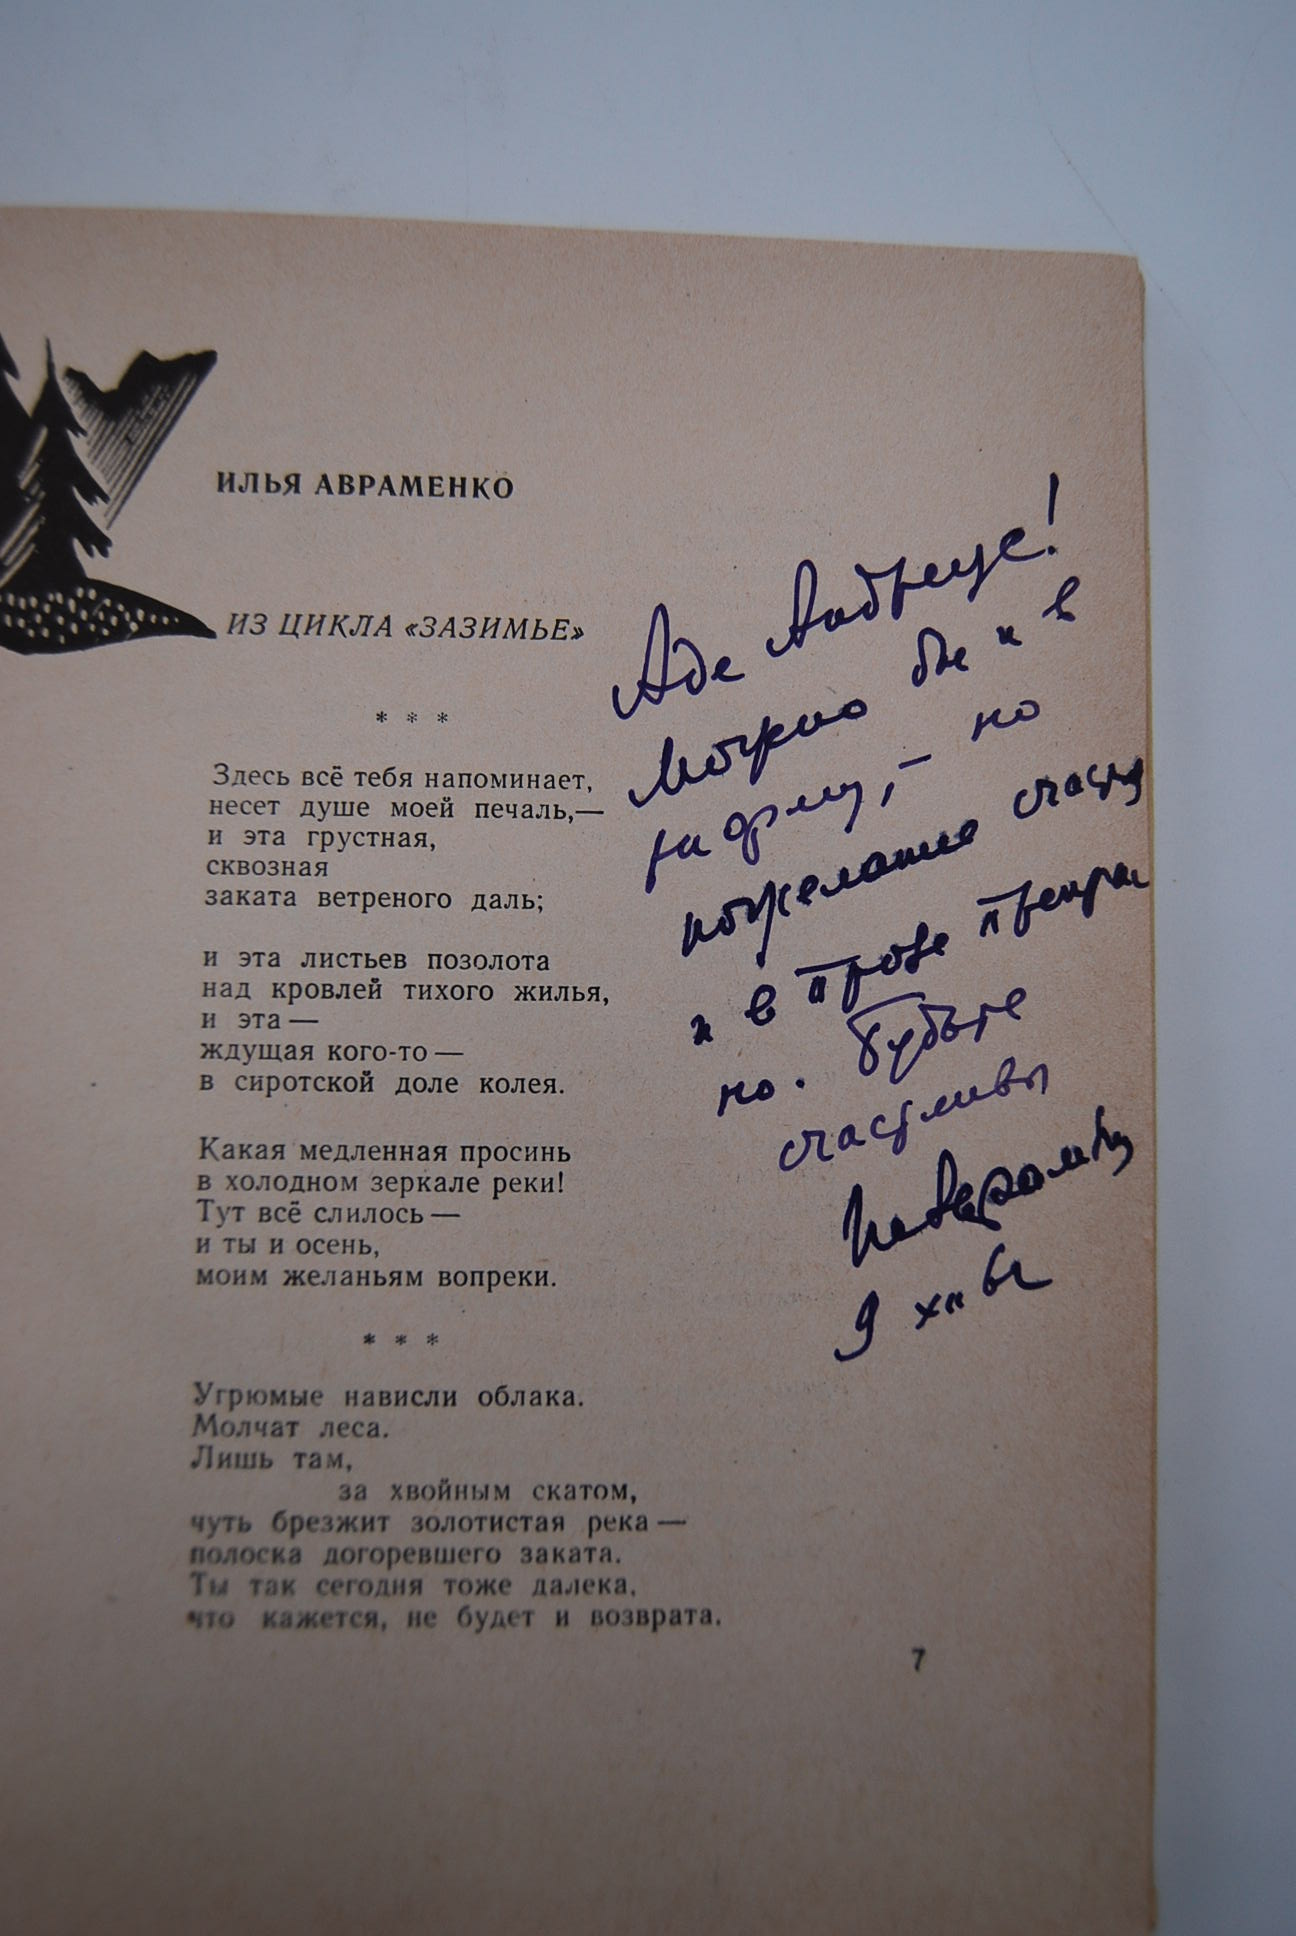 ИЛЬЯ АВРАМЕНКО
ИЗ ЦИКЛА «ЗАЗИМЬЕ»
* * *
Здесь всё тебя напоминает,
несет душе моей печаль,—
и эта грустная,
сквозная
заката ветреного даль;
и эта листьев позолота
над кровлей тихого жилья,
и эта —
ждущая кого-то —
в сиротской доле колея.
Какая медленная просинь
в холодном зеркале реки!
Тут всё слилось —
и ты и осень,
моим желаньям вопреки.
* * *
Угрюмые нависли облака.
Молчат леса.
Лишь там,
за хвойным скатом,
чуть брезжит золотистая река —
полоска догоревшего заката.
Ты так сегодня тоже далека,
что кажется, не будет и возврата.
7
Аде
Можно бы и в
рифму, — но
пожелание счастья
и в прозе прекрас
но. Будьте
счастливы
9